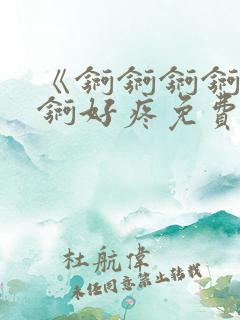 《锕锕锕锕
锕好疼免費
杜航偉
未经同意禁止转载